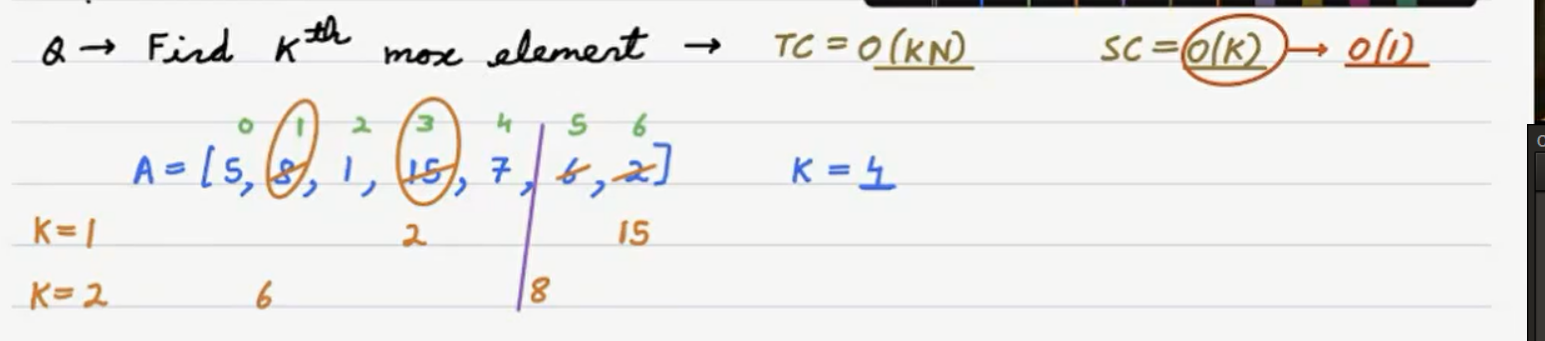 Q → Find Kth max element → TC = O(KN) SC = O(K) → O(1)
0 1 2 3 4 5 6
A = [5, 8, 1, 15, 7, 6, 2] K = 4
K = 1 2 15
K = 2 6 8